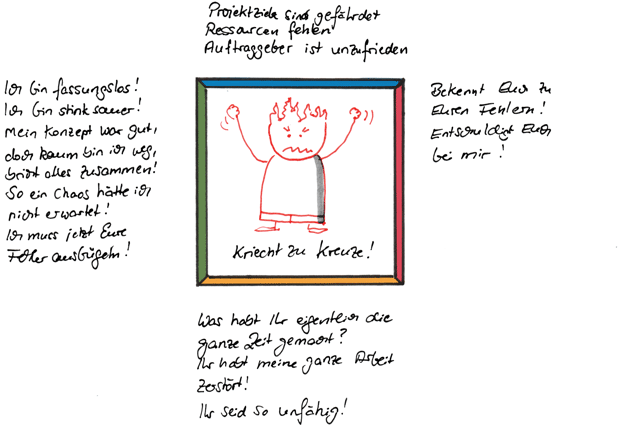 Projektziele sind gefährdet
Ressourcen fehlen
Auftraggeber ist unzufrieden
Ich bin fassungslos!
Ich bin stinksauer!
Mein Konzept war gut,
doch kaum bin ich weg,
bricht alles zusammen!
So ein Chaos hätte ich
nicht erwartet!
Ich muss jetzt Eure
Fehler ausbügeln!
Kriecht zu Kreuze!
Bekennt Euch zu
Euren Fehlern!
Entschuldigt Euch
bei mir!
Was habt Ihr eigentlich die
ganze Zeit gemacht?
Ihr habt meine ganze Arbeit
zerstört!
Ihr seid so unfähig!